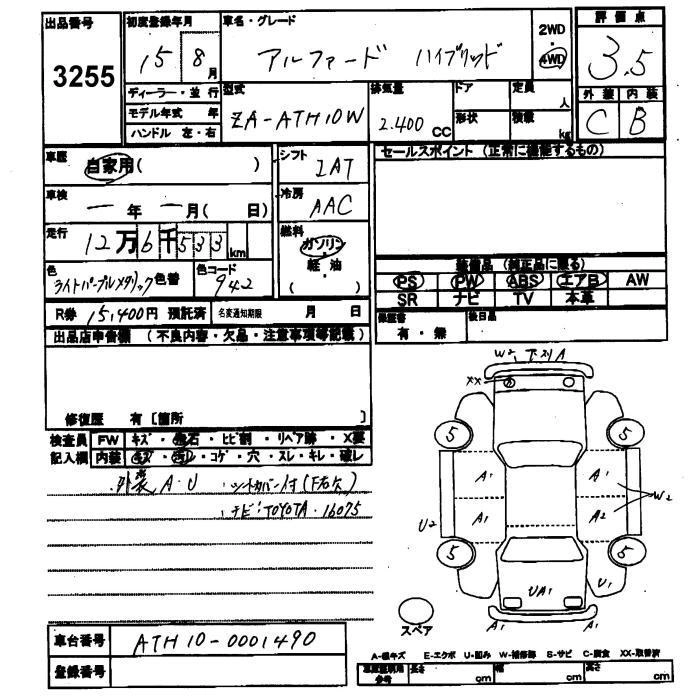 出品番号 3255
初度登録年月 15 8月
車名・グレード アルファード ハイブリッド
2WD 4WD
評価点 3.5
外装 C 内装 B
ディーラー・並行
モデル年式 年
ハンドル 左・右
型式 ZA-ATH10W
排気量 2.400 CC
ドア 形状
定員 人
積載 kg
車歴 自家用( )
シフト IAT
セールスポイント (正常に機能するもの)
車検 一年一月( 日)
冷房 AAC
走行 12万6千533km
燃料 ガソリン・軽油 ( )
色 ライトパープルメタリック 色替
色コード 942
装備品 (純正品に限る)
PS PW ABS エアB AW
SR ナビ TV 本革
R券 15,400円 預託済 名変通知期限 月 日
保証書 有・無
後日品
出品店申告欄 (不良内容・欠品・注意事項等記載)
修復歴 有 [箇所 ]
検査員 FW キズ・飛石・ヒビ割・リペア跡・X要
記入欄 内装 キズ・汚レ・コゲ・穴・スレ・キレ・破レ
・外装 A・U ・シートカバー付(下右欠)
・ナビ:TOYOTA・16075
W2 下スリA
XX
5 5
A1 A1
W2
A1 A2
U2
5 5
UA1 U1
スペア A1 A1
車台番号 ATH10-0001490
登録番号
A-線キズ E-エクボ U-凹み W-補修跡 S-サビ C-腐食 XX-取替済
車庫証明用参考 長さ cm 幅 cm 高さ cm